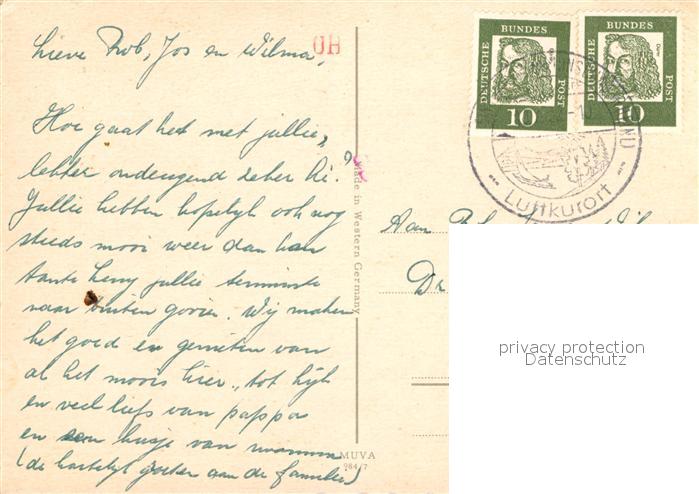 Lieve Rob, Jos en Wilma,
OH
Hoe gaat het met jullie,
lekker ondeugend zeker hè?
Jullie hebben hopelijk ook nog
steeds mooi weer dan kan
tante Leny jullie tenminste
naar buiten gooien. Wij maken
het goed en genieten van
al het moois hier, tot kijk
en veel liefs van pappa
en een kusje van mamma
(de hartelijk groeten aan de families)
Made in Western Germany
MUVA
984/7
DEUTSCHE BUNDES POST
10
DEUTSCHE BUNDES POST
Dürer
10
Luftkurort
Aan Rob
Dr
privacy protection
Datenschutz